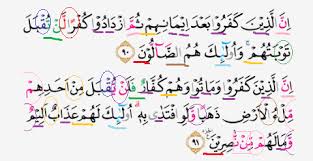 اِنَّ الَّذِيْنَ كَفَرُوْا بَعْدَ اِيْمَانِهِمْ ثُمَّ ازْدَادُوْا كُفْرًا لَّنْ تُقْبَلَ
تَوْبَتُهُمْۚ وَاُولٰۤىِٕكَ هُمُ الضَّاۤلُّوْنَ ٩٠
اِنَّ الَّذِيْنَ كَفَرُوْا وَمَاتُوْا وَهُمْ كُفَّارٌ فَلَنْ يُّقْبَلَ مِنْ اَحَدِهِمْ
مِّلْءُ الْاَرْضِ ذَهَبًا وَّلَوِ افْتَدٰى بِهٖۗ اُولٰۤىِٕكَ لَهُمْ عَذَابٌ اَلِيْمٌ
وَّمَا لَهُمْ مِّنْ نّٰصِرِيْنَ ٩١